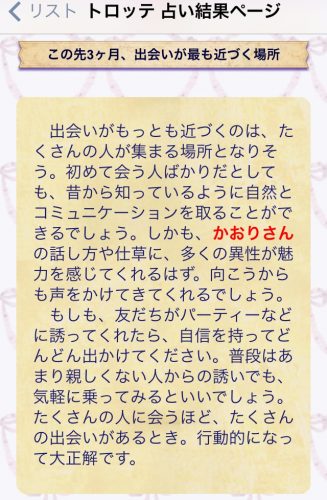 リスト トロッテ 占い結果ページ
この先3ヶ月、出会いが最も近づく場所
出会いがもっとも近づくのは、た
くさんの人が集まる場所となりそ
う。初めて会う人ばかりだとして
も、昔から知っているように自然と
コミュニケーションを取ることがで
きるでしょう。しかも、かおりさん
の話し方や仕草に、多くの異性が魅
力を感じてくれるはず。向こうから
も声をかけてきてくれるでしょう。
もしも、友だちがパーティーなど
に誘ってくれたら、自信を持ってど
んどん出かけてください。普段はあ
まり親しくない人からの誘いでも、
気軽に乗ってみるといいでしょう。
たくさんの人に会うほど、たくさん
の出会いがあるとき。行動的になっ
て大正解です。